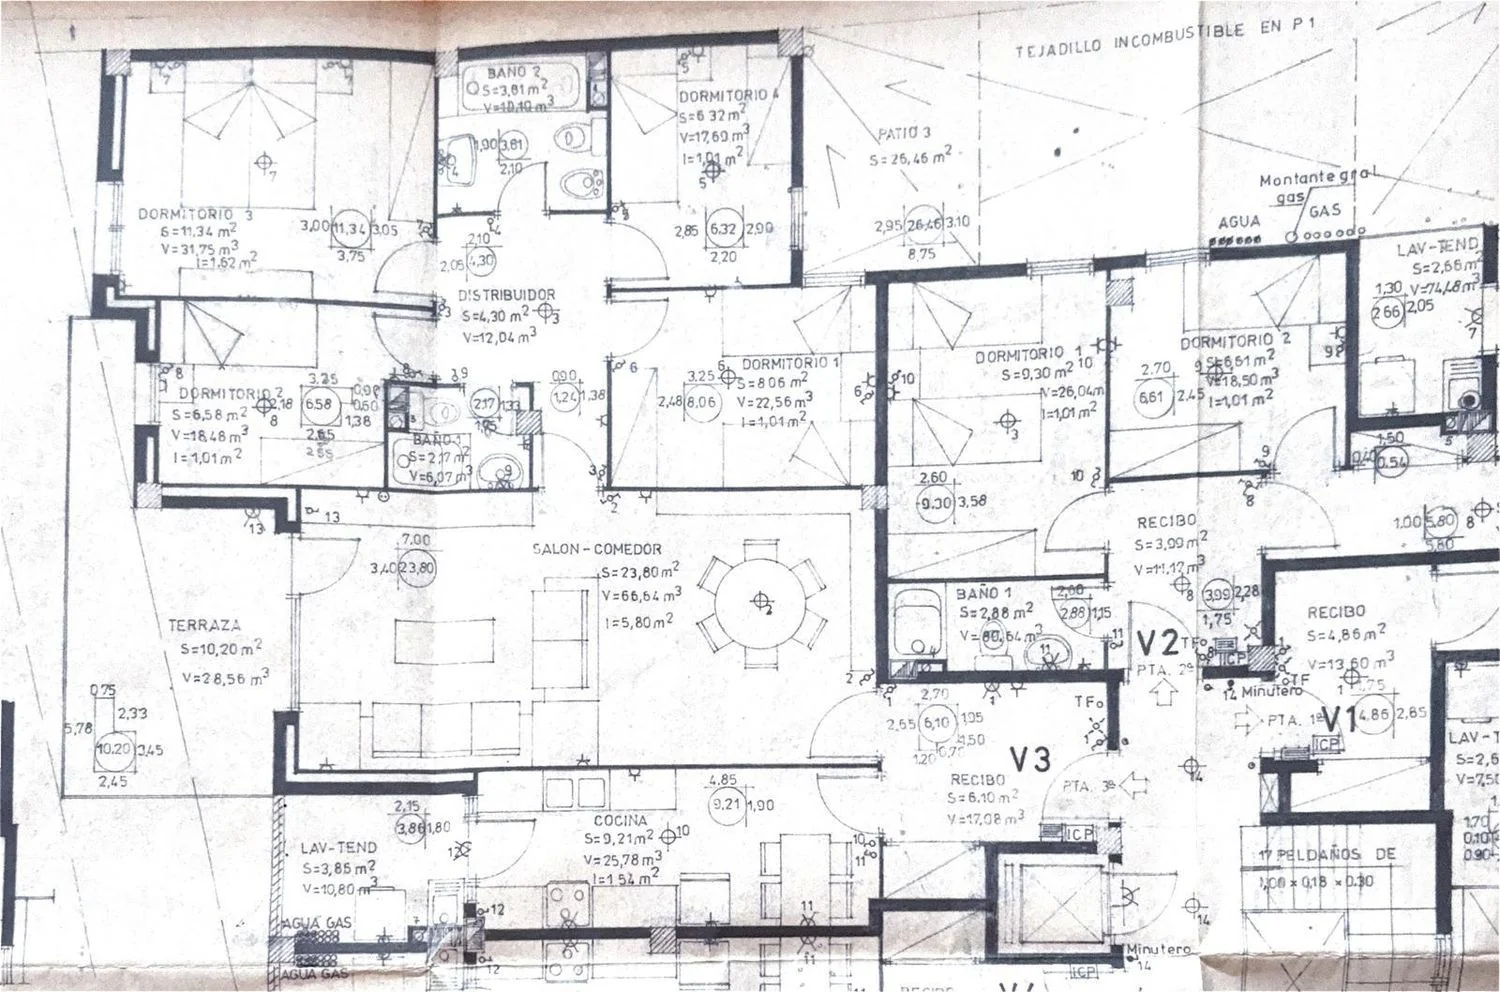 TEJADILLO INCOMBUSTIBLE EN P1
BAÑO 2
S=3,61 m²
V=10,10 m³
1,90 3,61
2,10
DORMITORIO 4
S=6 32 m²
V=17,69 m³
I=1,01 m²
2,85 6,32 2,90
2,20
PATIO 3
S=26,46 m²
2,95 26,46 3,10
8,75
Montante gral
gas
AGUA
GAS
DORMITORIO 3
S=11,34 m²
V=31,75 m³
I=1,62 m²
3,00 11,34 3,05
3,75
2,10
2,05 4,30
DISTRIBUIDOR
S=4,30 m²
V=12,04 m³
LAV-TEND
S=2,66 m²
V=74,48 m³
1,30
2,66 2,05
DORMITORIO 2
S=6,58 m²
V=18,48 m³
I=1,01 m²
3,25
6,58
1,38
2,65
2,17 1,33
BAÑO 1
S=2,17 m²
V=6,07 m³
0,90
1,24 1,38
DORMITORIO 1
S=8,06 m²
V=22,56 m³
I=1,01 m²
3,25
2,48 8,06
DORMITORIO 1
S=9,30 m²
V=26,04 m³
I=1,01 m²
2,60
9,30 3,58
DORMITORIO 2
S=6,61 m²
V=18,50 m³
I=1,01 m²
2,70
6,61 2,45
1,50
0,40 0,54
1,00 5,80
5,80
RECIBO
S=3,99 m²
V=11,17 m³
3,99 2,28
1,75
BAÑO 1
S=2,88 m²
V=80,64 m³
2,60
2,88 1,15
SALON-COMEDOR
S=23,80 m²
V=66,64 m³
I=5,80 m²
7,00
3,40 23,80
TERRAZA
S=10,20 m²
V=28,56 m³
0,75
2,33
5,78
10,20 3,45
2,45
V2
TF
ICP
PTA. 2ª
Minutero
14
TF
PTA. 1ª
V1
ICP
RECIBO
S=4,86 m²
V=13,60 m³
4,86 2,85
2,70
2,55 6,10 1,95
1,50
1,20 0,70
TF
V3
RECIBO
S=6,10 m²
V=17,08 m³
PTA. 3ª
ICP
4,85
9,21 1,90
COCINA
S=9,21 m²
V=25,78 m³
I=1 54 m²
2,15
3,86 1,80
LAV-TEND
S=3,86 m²
V=10,80 m³
AGUA GAS
AGUA GAS
17 PELDAÑOS DE
1,00 x 0,18 x 0,30
Minutero
14
ICP
LAV-T
S=2,6
V=7,50
1,70
0,10
0,90